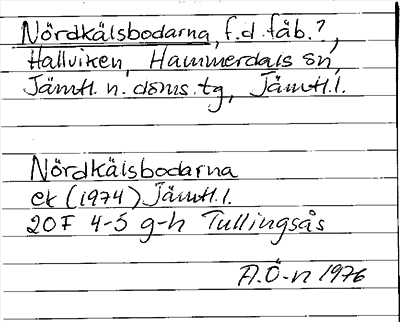 Nördkälsbodarna, f.d. fäb.?,
Hallviken, Hammerdals sn,
Jämtl. n. doms. tg, Jämtl. l.
Nördkälsbodarna
ek (1974) Jämtl. l.
20F 4-5 g-h Tullingsås
A.Ö-n 1976